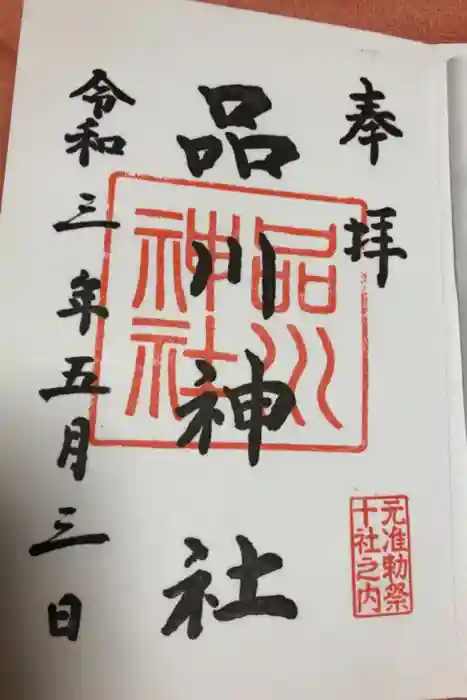 奉拝
品川神社
品川神社
令和三年五月三日
元准勅祭
十社之内